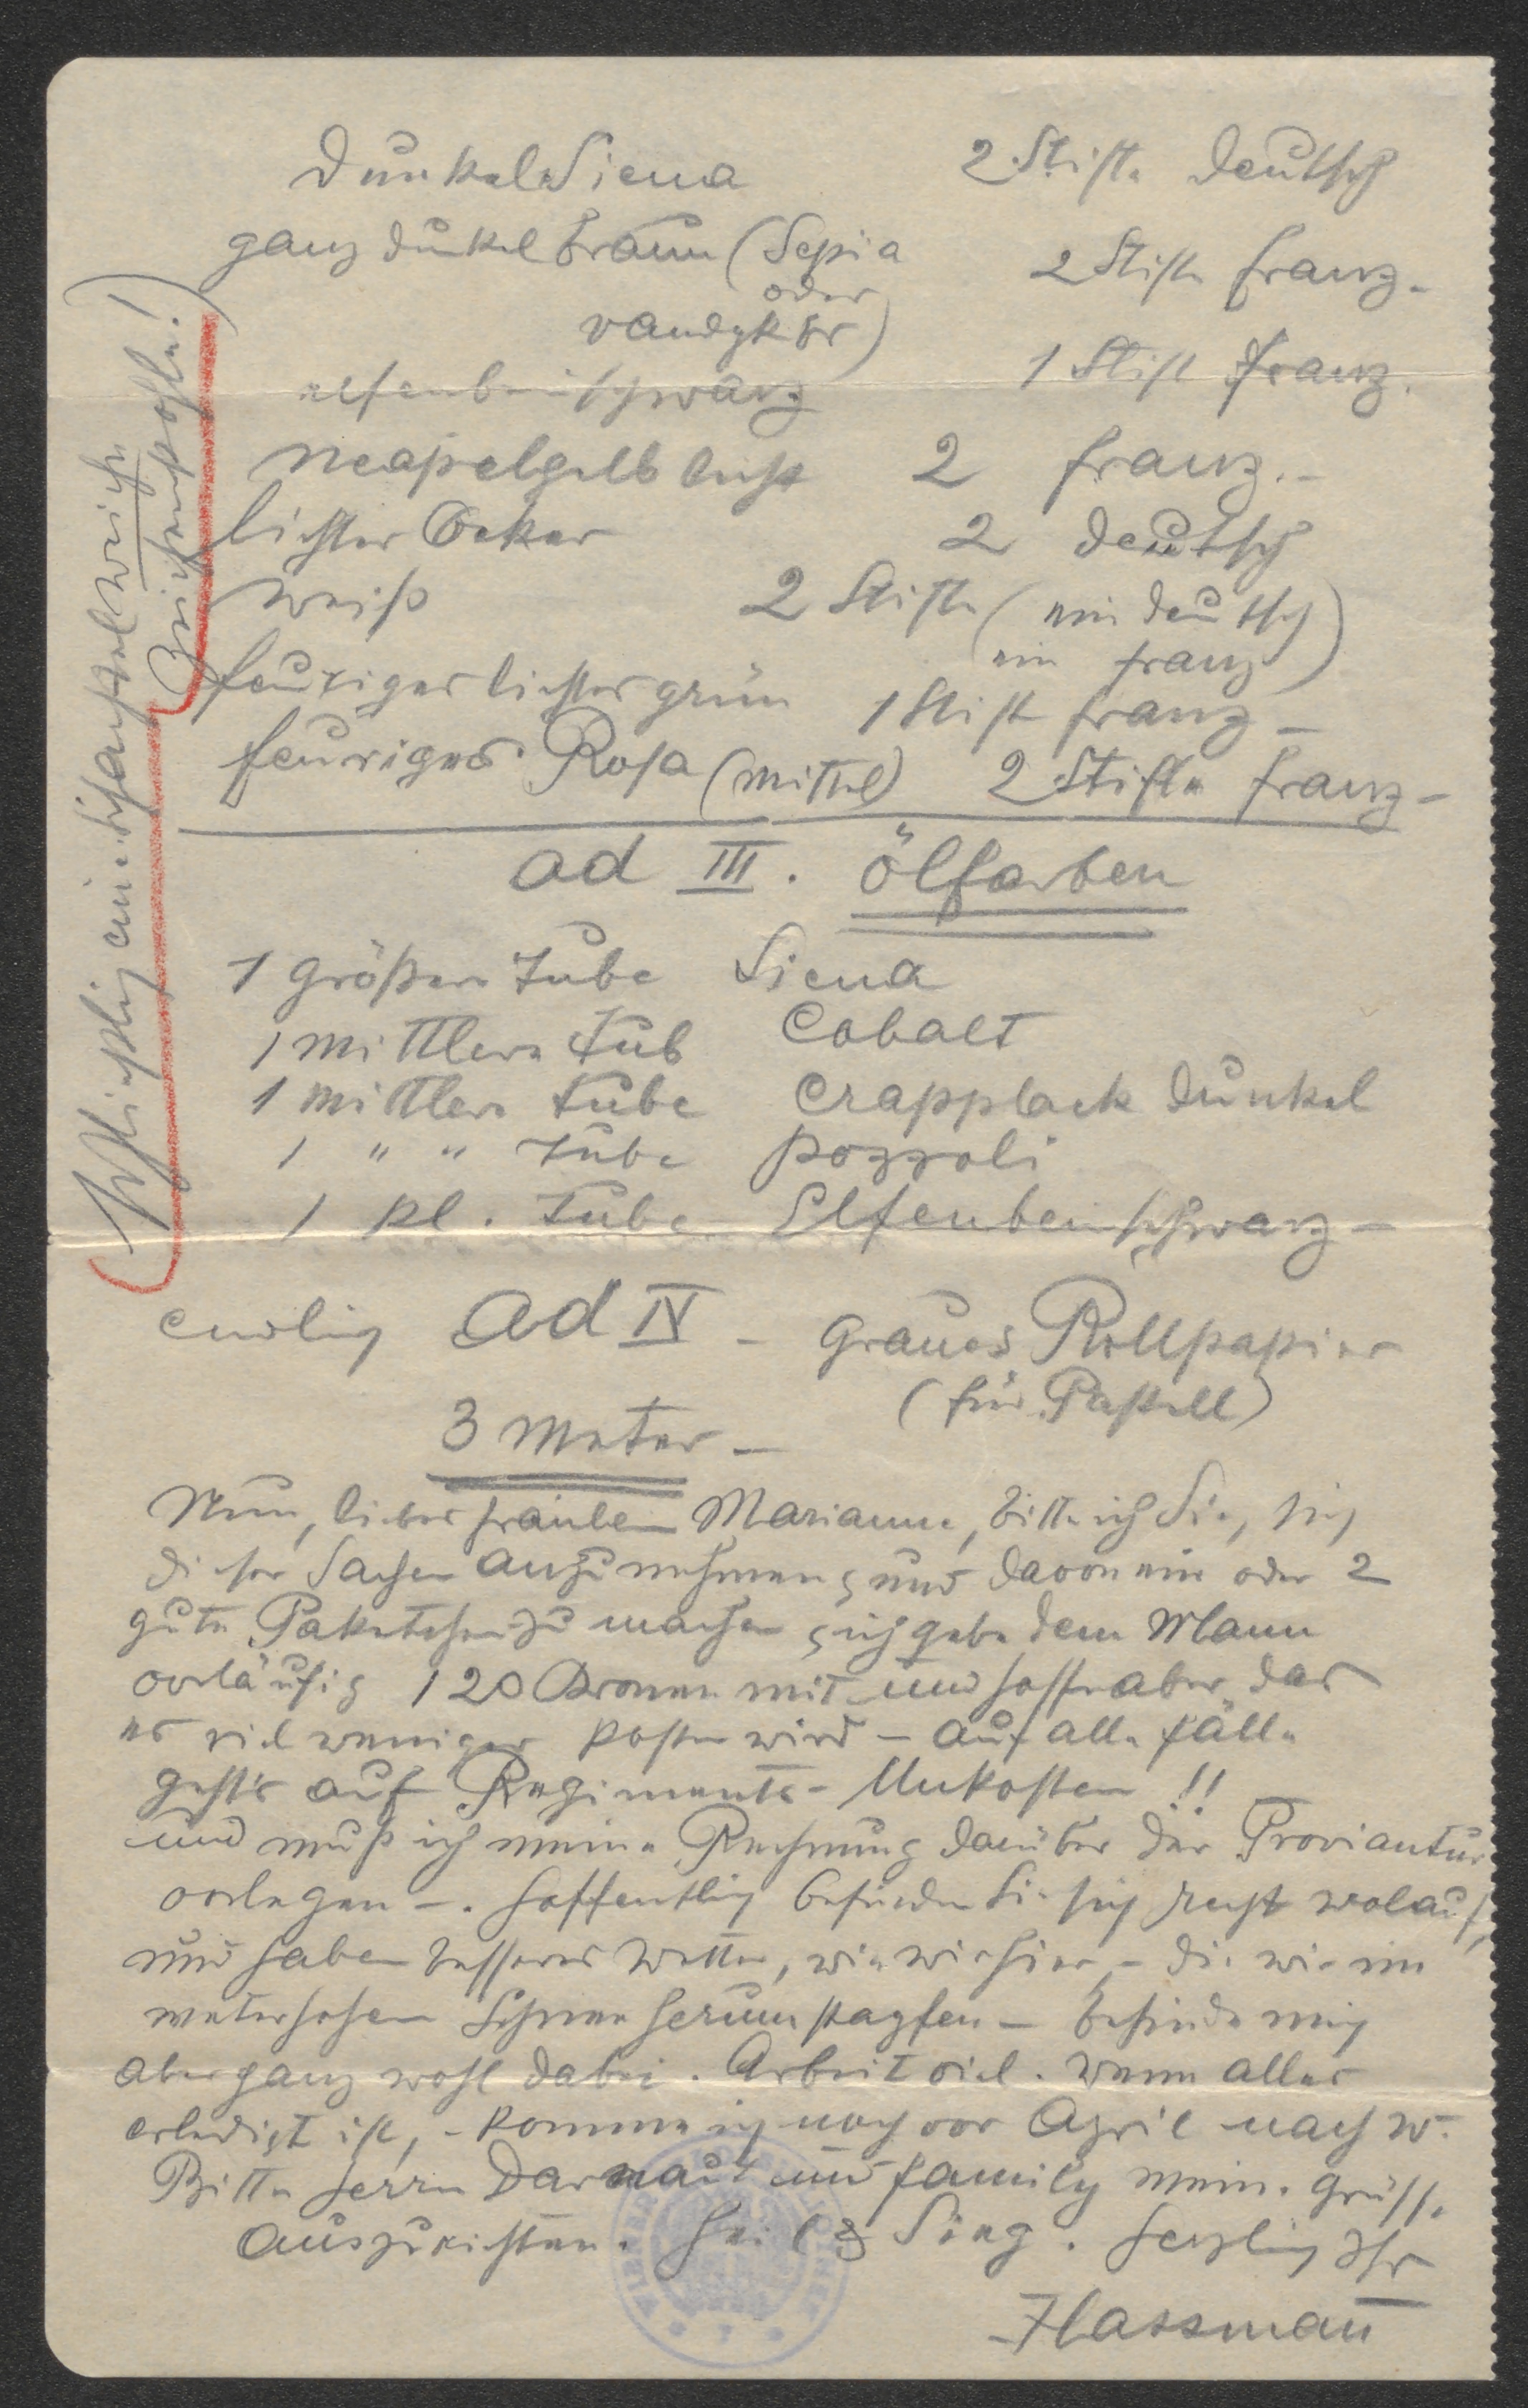 Dunkel Siena 2 Stifte Deutsch
ganz dunkel braun (Sepia 2 Stifte franz.
oder
vandykbr) 1 Stift franz.
elfenbeinschwarz
Neapelgelb licht 2 franz. -
lichter Ocker 2 deutsch
Weiß 2 Stifte (ein deutsch
ein franz)
feuriger lichter grün 1 Stift franz -
feuriges Rosa (mittel) 2 Stifte franz -
ad III. Ölfarben
1 größere Tube Siena
1 mittlere Tub Cobalt
1 mittlere Tube Crapplack dunkel
1 " " Tube Pozzoli
1 kl. Tube Elfenbeinschwarz -
endlich ad IV - graues Rollpapier
(für Pastell)
3 Meter -
Nun, liebes Fräulein Marianne, bitte ich Sie, sich
dieser Sachen anzunehmen, und davon ein oder 2
gute Paketchen zu machen, ich gebe dem Mann
vorläufig 120 Kronen mit und hoffe aber das
es viel weniger kosten wird - auf alle fälle
geht's auf Regiments-Unkosten!!
und muß ich meine Rechnung darüber der Proviantur
vorlegen -. Hoffentlich befinden Sie sich recht wolauf,
und haben besseres Wetter, wie wir hier - die wir im
meterhohen Schnee herumstapfen - befinde mich
aber ganz wohl dabei. Arbeit viel. Wenn alles
erledigt ist, - komme ich noch vor April nach W.
Bitte Herrn Darnaut und Family meine Grüsse
auszurichten. Heil & Sieg. Herzlich Ihr
Hassmann
(schließlich eine Schachtel weiche
Zeichenkohle!)